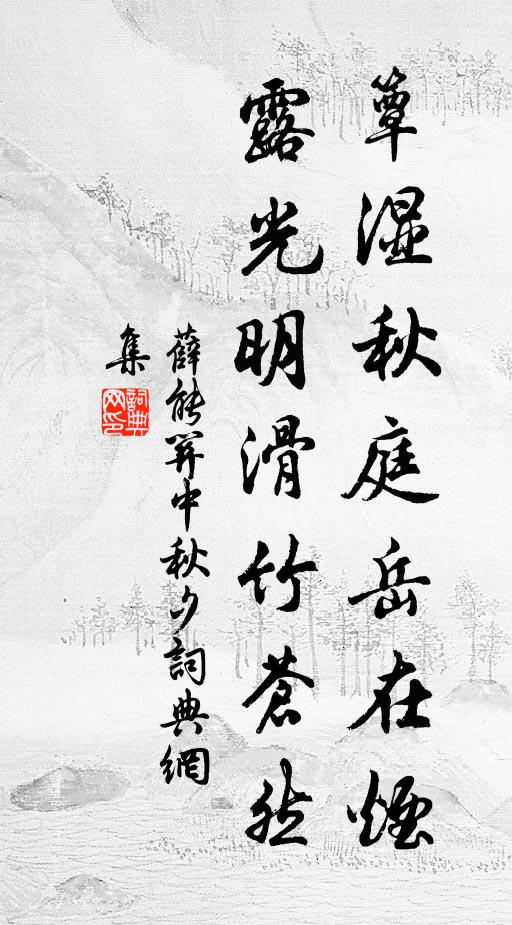 簟湿秋庭岳在煙
露光明滑竹蒼然
薛能 筭中秋夕 詞典網
集
詞典
网印